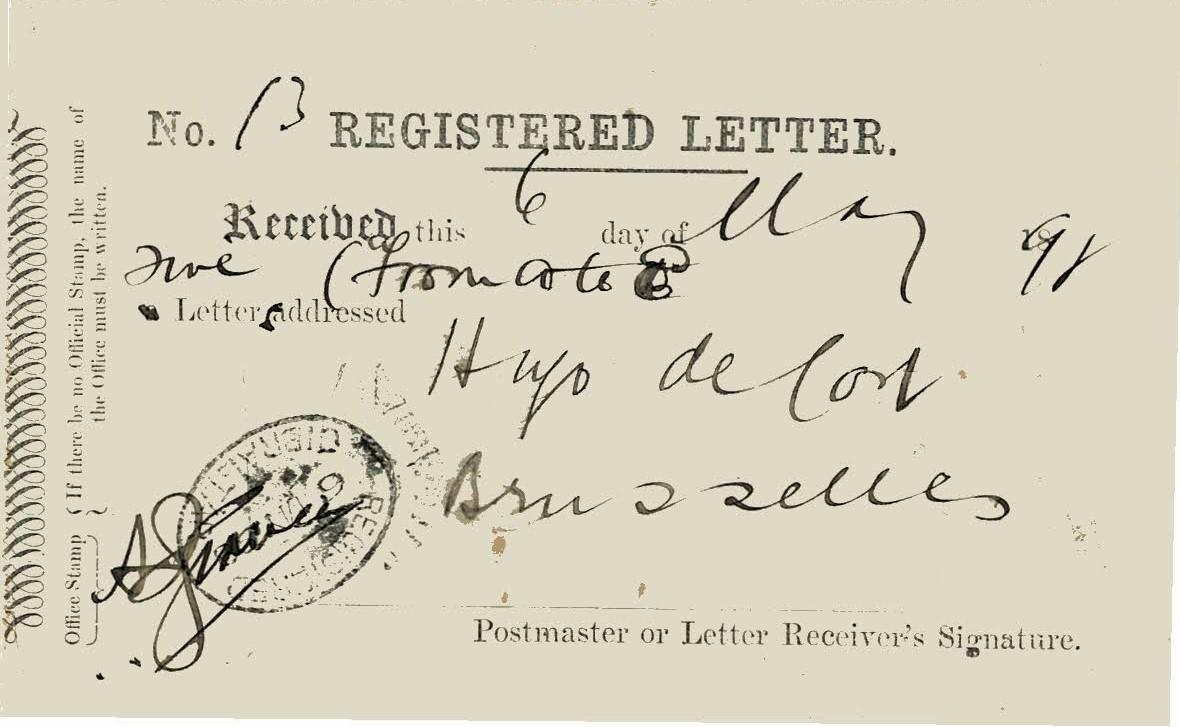 No. 13 REGISTERED LETTER.
Received this 6 day of May 98
five (from A to E)
Letters addressed
Hugo de Cort
Brusselles
Postmaster or Letter Receiver's Signature.
Office Stamp { If there be no Official Stamp, the name of
the Office must be written. }
GIBRALTAR
REGISTERED